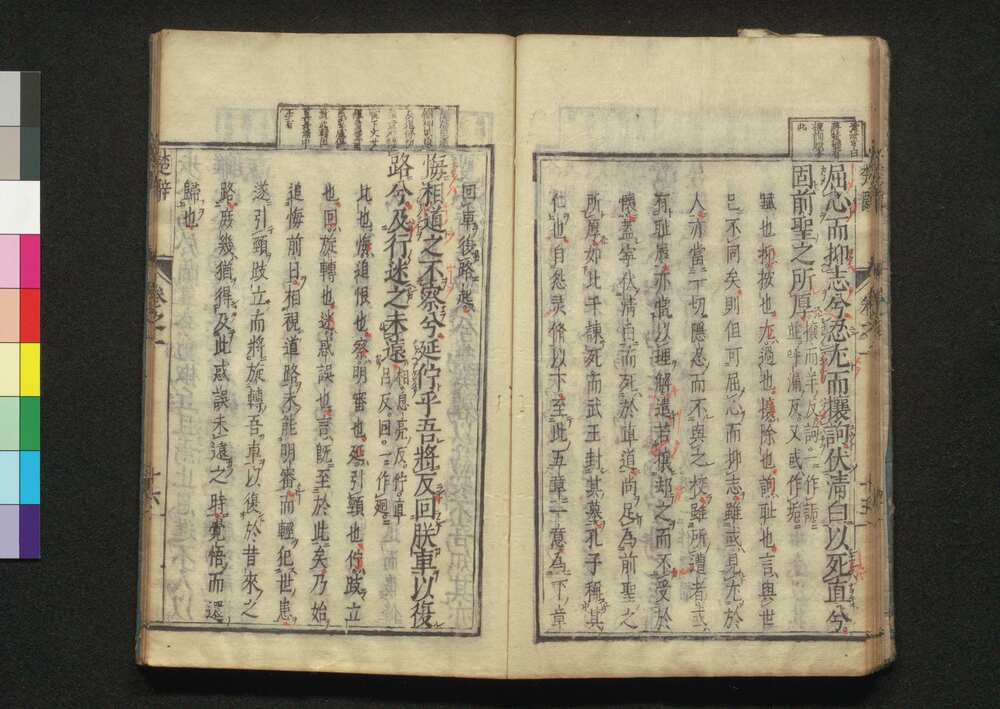 屈心而抑志兮忍尤而攘詬伏清白以死直兮
固前聖之所厚
攘而羊反詬一作詢
並呼漏反又或作垢
賦也抑按也尤過也攘除也詬耻也言與世
已不同矣則但可屈心而抑志雖或見尤於
人亦當一切隱忍而不與之校雖所遭者或
有耻辱亦當以理解遣若攘却之而不受於
懷蓋寧伏清白而死於直道尚足為前聖之
所厚如比干諫死而武王封其墓孔子稱其
仁也自怨靈脩以下至此五章一意為下章
楚辭
卷之一
十五
回車復路起
悔相道之不察兮延佇乎吾將反回朕車以復
路兮及行迷之未遠
相息亮反佇直
呂反回一作迴
比也悔追恨也察明審也延引頸也佇跂立
也回旋轉也迷惑誤也言既至於此矣乃始
追悔前日相視道路未能明審而輕犯世患
遂引頸跂立而將旋轉吾車以復於昔來之
路庶幾猶得及此惑誤未遠之時覺悟而還
歸也
楚辭
卷之一
十六